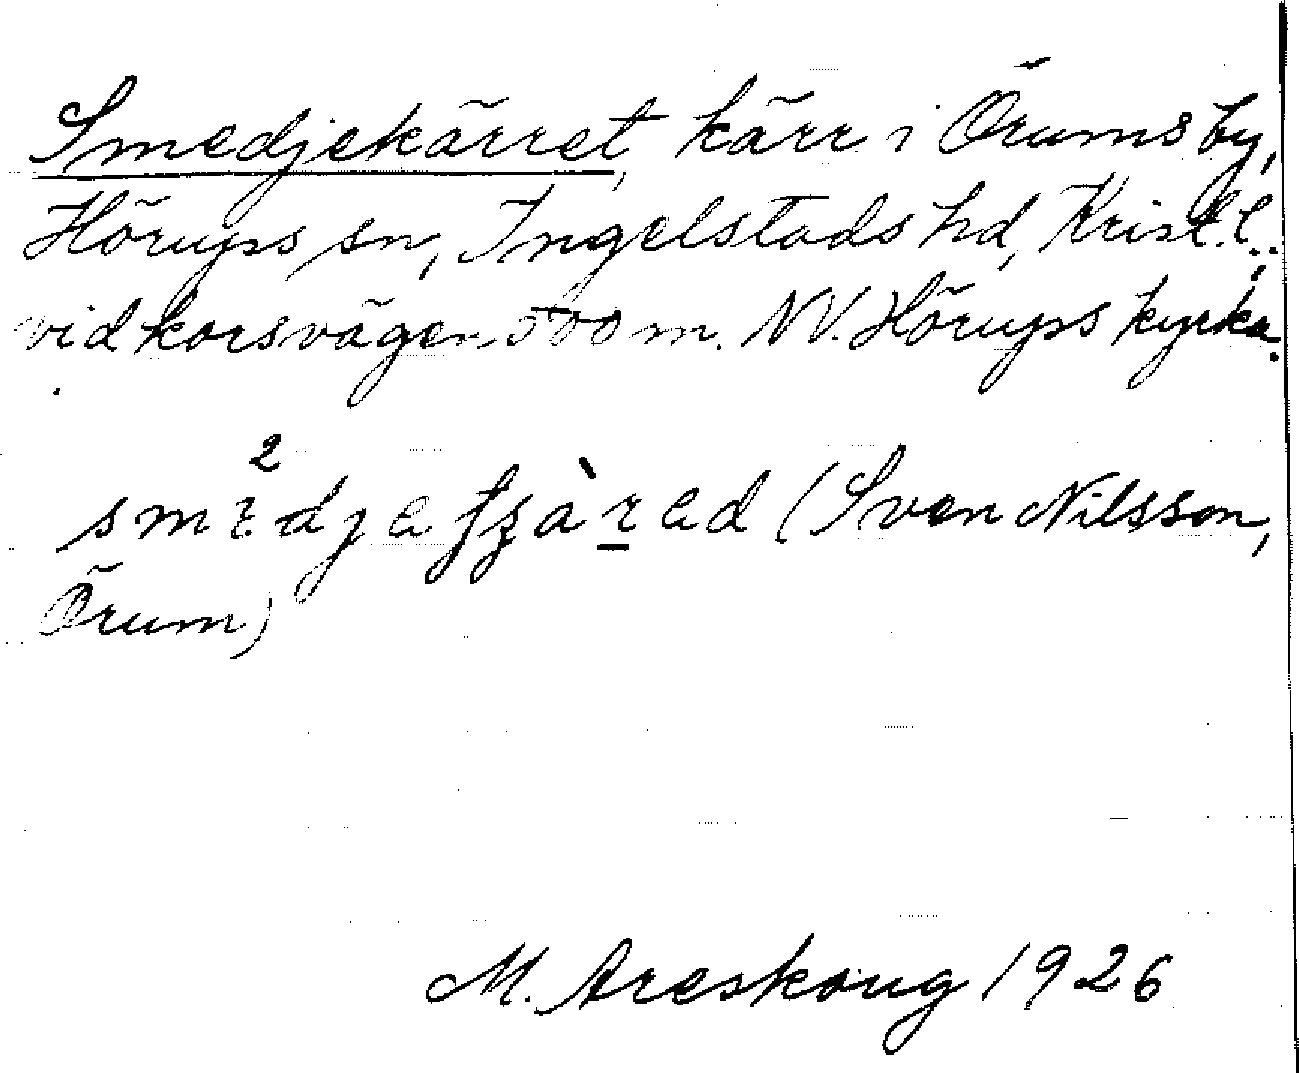 Smedjekärret, kärr i Örums by,
Hörups sn, Ingelstads hd, Krist. l.
vid korsvägen 500 m. NV. Hörups kyrka.
(Sven Nilsson,
Örum)
M. Areskoug 1926